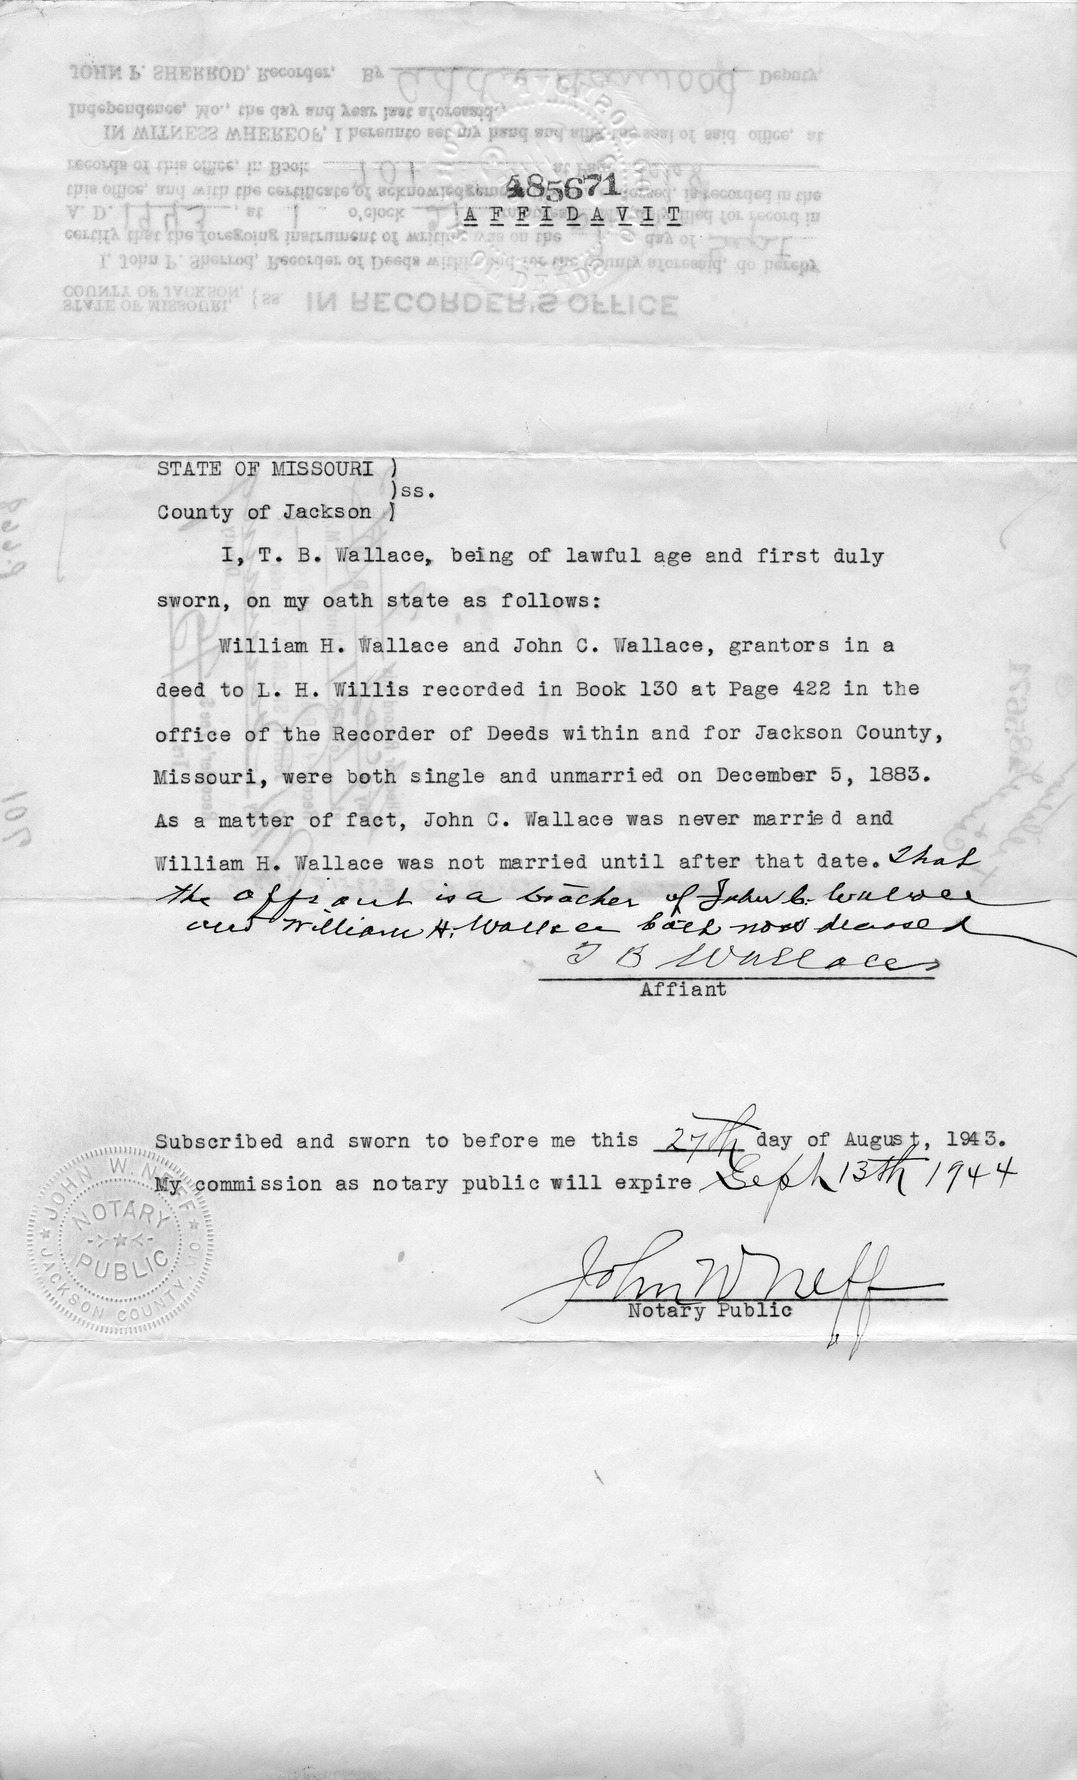 485671
AFFIDAVIT
STATE OF MISSOURI )
)ss.
County of Jackson )
I, T. B. Wallace, being of lawful age and first duly
sworn, on my oath state as follows:
William H. Wallace and John C. Wallace, grantors in a
deed to L. H. Willis recorded in Book 130 at Page 422 in the
office of the Recorder of Deeds within and for Jackson County,
Missouri, were both single and unmarried on December 5, 1883.
As a matter of fact, John C. Wallace was never married and
William H. Wallace was not married until after that date. That
the affiant is a brother of John C. Wallace
and William H. Wallace both now deceased
T B Wallace
Affiant
Subscribed and sworn to before me this 27th day of August, 1943.
My commission as notary public will expire Sept 13th 1944
John W Neff
Notary Public
JOHN W. NEFF
NOTARY
PUBLIC
JACKSON COUNTY, MO.
STATE OF MISSOURI,
COUNTY OF JACKSON, } ss
IN RECORDER'S OFFICE
I, John P. Sherrod, Recorder of Deeds within and for the County aforesaid, do hereby
certify that the foregoing instrument of writing was on the 1 day of Sept
A. D. 1943, at 1 o'clock minutes filed for record in
this office, and with the certificate of acknowledgment is recorded in the
records of this office, in Book 701 at Page 668
IN WITNESS WHEREOF, I hereunto set my hand and affix the seal of said office, at
Independence, Mo., the day and year last aforesaid.
JOHN P. SHERROD, Recorder, By Deputy,